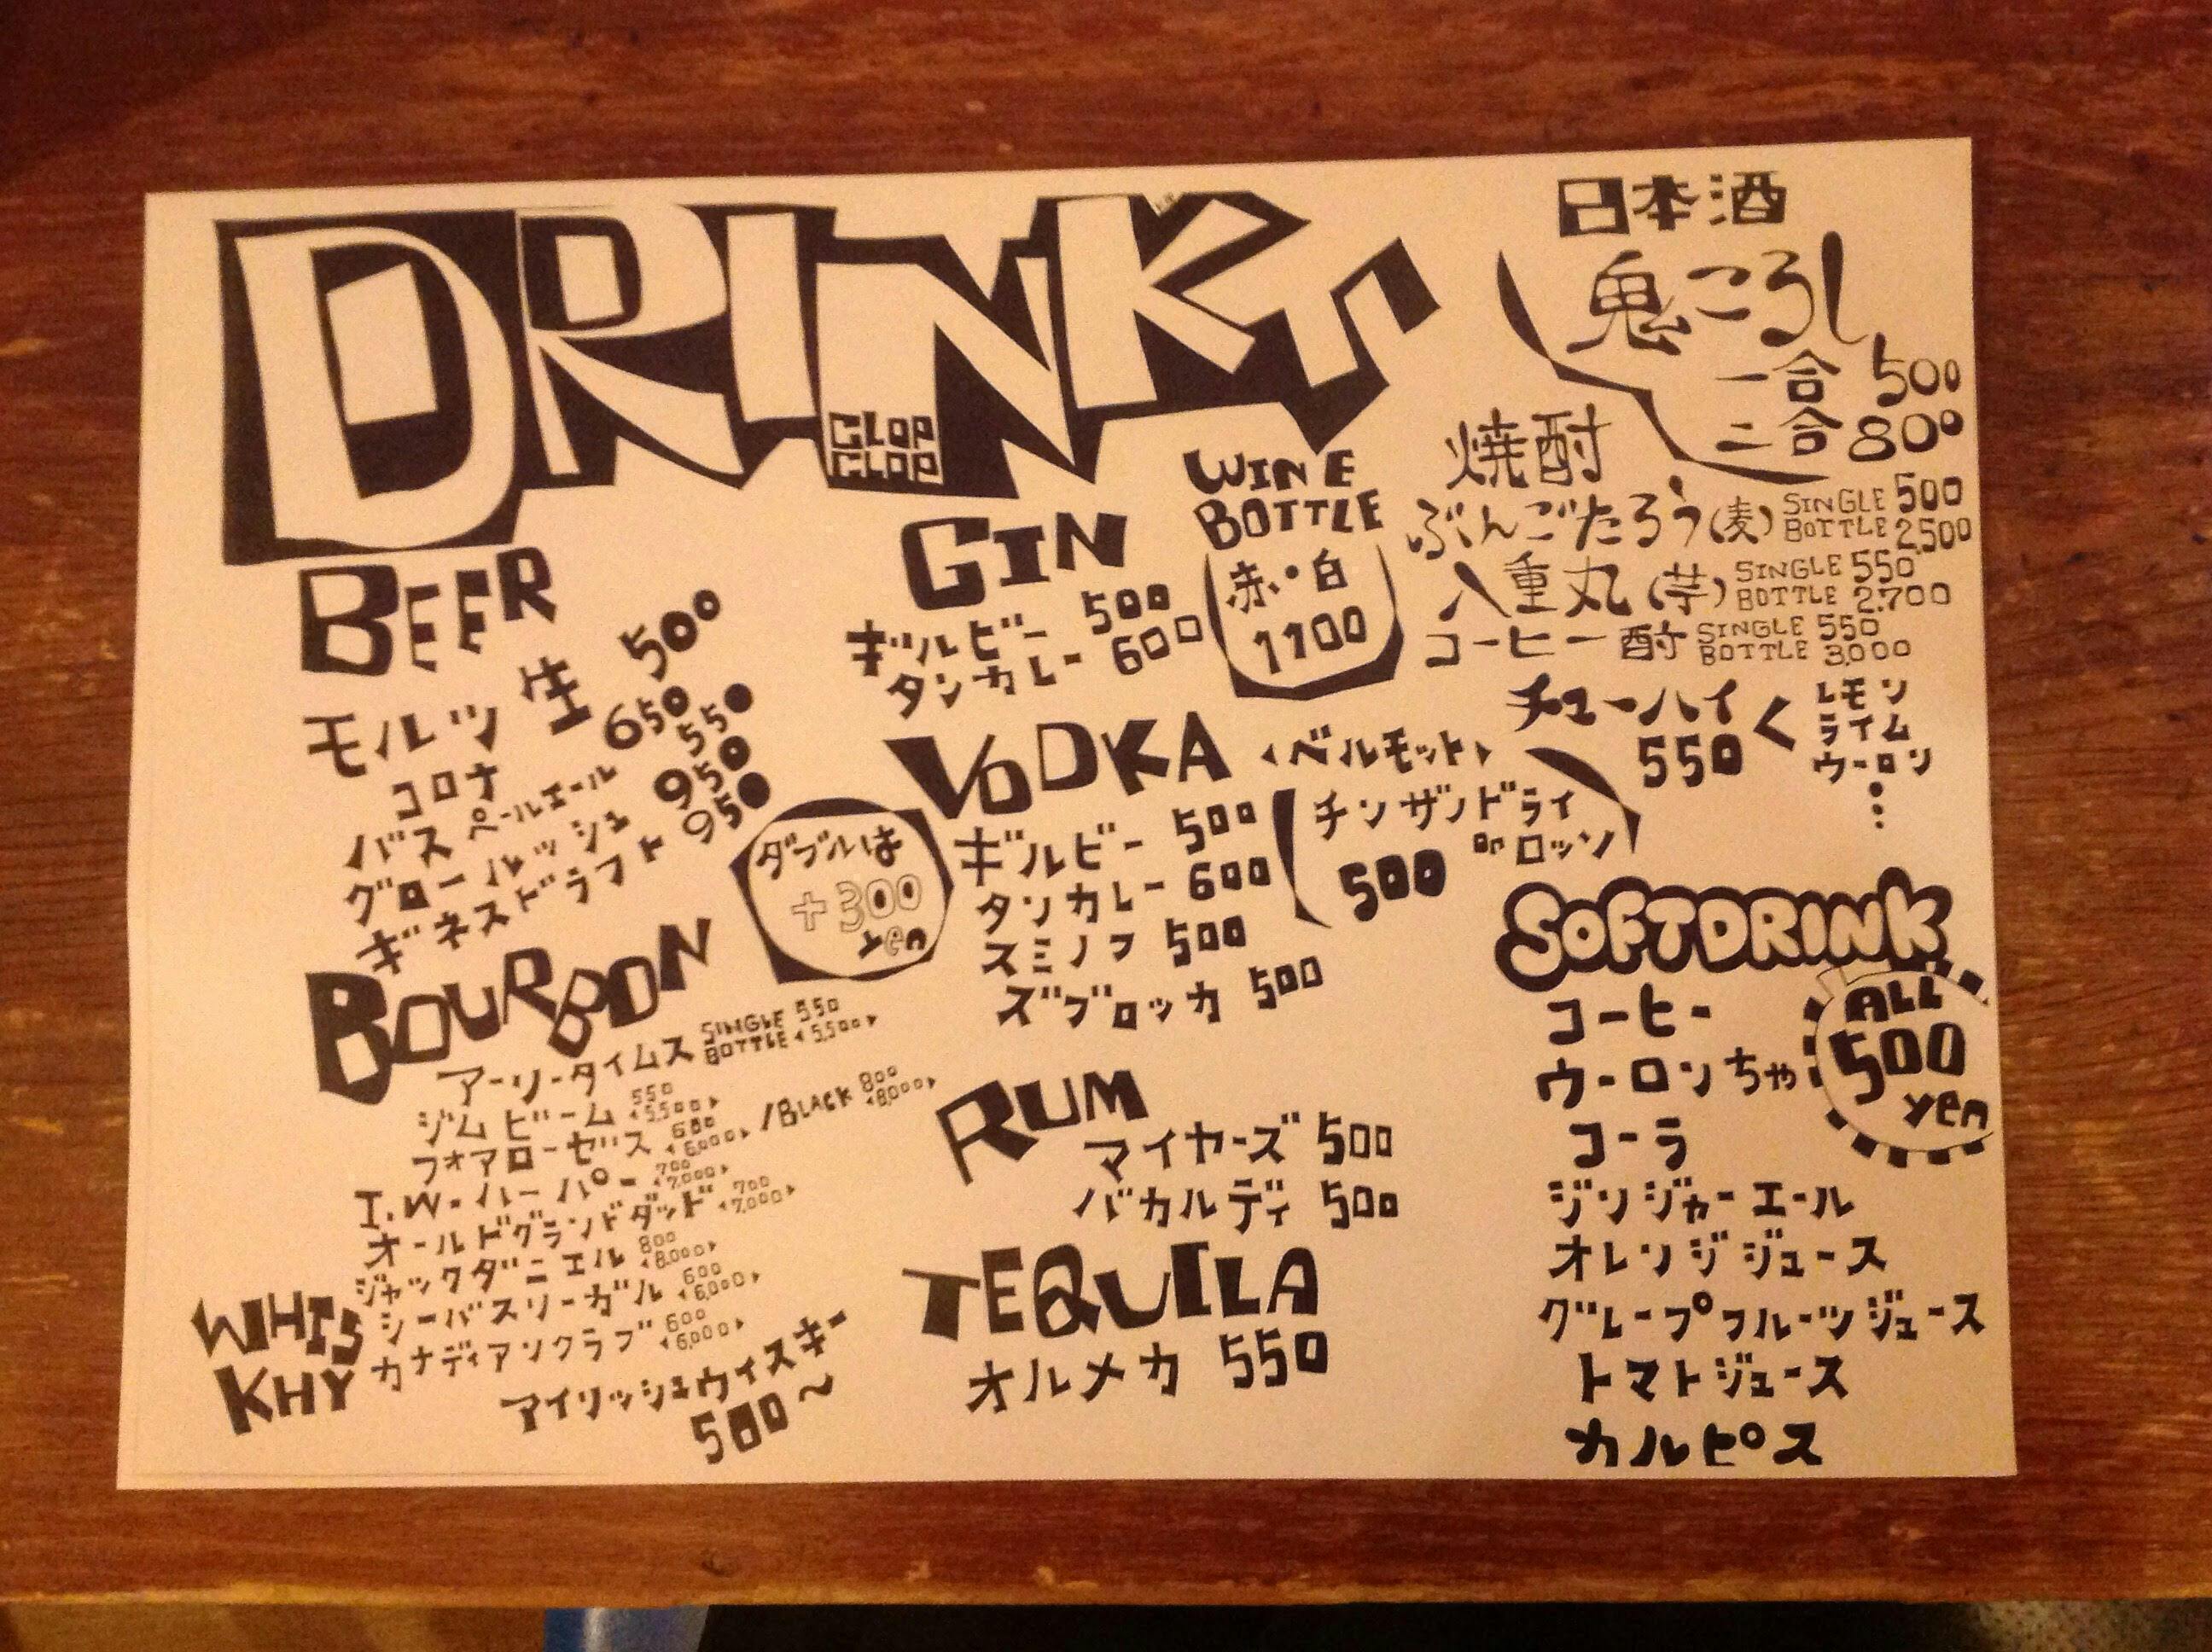 DRINK
CLOP
CLOP
BEER
モルツ 生 500
コロナ 650
バス ペールエール 550
グロールッシュ 950
ギネスドラフト 950
ダブルは
+300
yen
BOURBON
アーリータイムス SINGLE 550
BOTTLE <5,500>
ジムビーム 550
<5,500>
フォアローゼス 600
<6,000> /BLACK 800
<8,000>
I.W.ハーパー 700
<7,000>
オールドグランドダッド 700
<7,000>
ジャックダニエル 800
<8,000>
WHIS
KHY
シーバスリーガル 600
<6,000>
カナディアンクラブ 600
<6,000>
アイリッシュウィスキー
500〜
GIN
ギルビー 500
タンカレー 600
WINE
BOTTLE
赤・白
1100
VODKA
ギルビー 500
タンカレー 600
スミノフ 500
ズブロッカ 500
<ベルモット>
チンザノドライ
or ロッソ
500
RUM
マイヤーズ 500
バカルディ 500
TEQUILA
オルメカ 550
日本酒
鬼ころし
一合 500
二合 800
焼酎
ぶんごたろう(麦) SINGLE 500
BOTTLE 2,500
八重丸(芋) SINGLE 550
BOTTLE 2,700
コーヒー酎 SINGLE 550
BOTTLE 3,000
チューハイ
550
レモン
ライム
ウーロン
⋮
SOFTDRINK
ALL
500
yen
コーヒー
ウーロンちゃ
コーラ
ジンジャーエール
オレンジジュース
グレープフルーツジュース
トマトジュース
カルピス